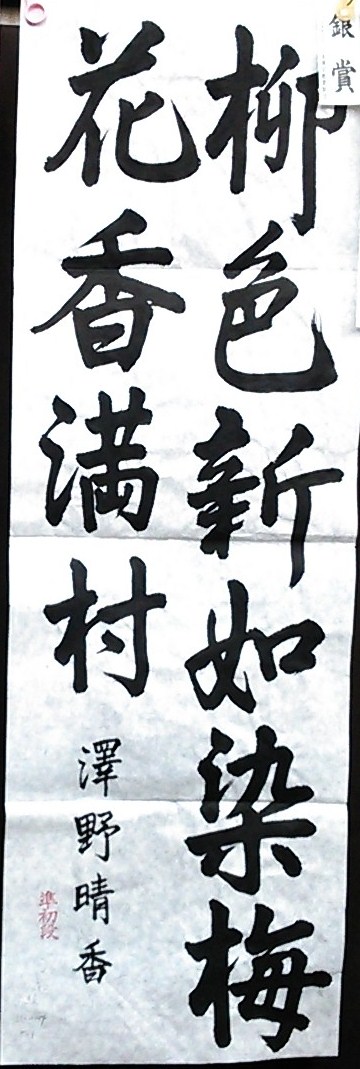 銀賞
柳色新如染梅
花香満村
澤野晴香
準初段